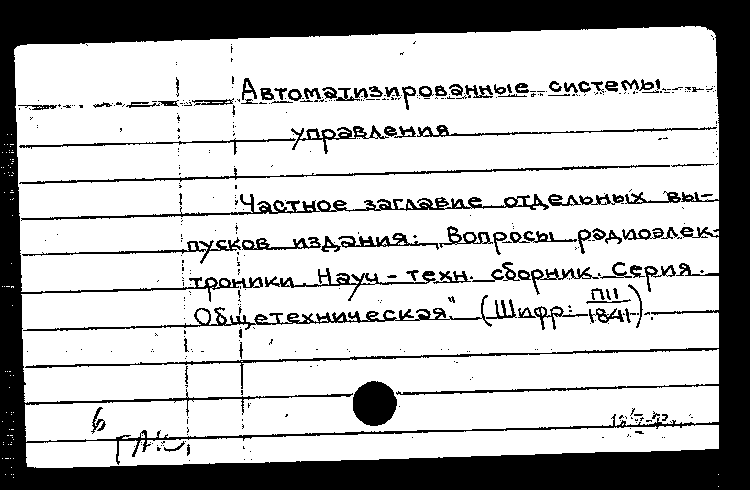 Автоматизированные системы
управления
Частное заглавие отдельных вы-
пусков издания: „Вопросы радиоэлек-
троники. Науч-техн. сборник. Серия.
Общетехническая." (Шифр: П11/1841).
6